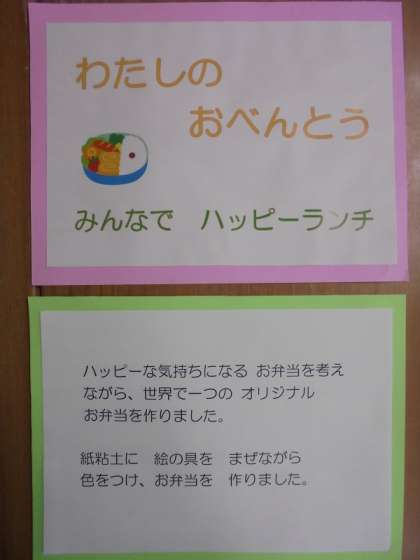 わたしの
おべんとう
みんなで ハッピーランチ
ハッピーな気持ちになる お弁当を考え
ながら、世界で一つの オリジナル
お弁当を作りました。
紙粘土に 絵の具を まぜながら
色をつけ、お弁当を 作りました。